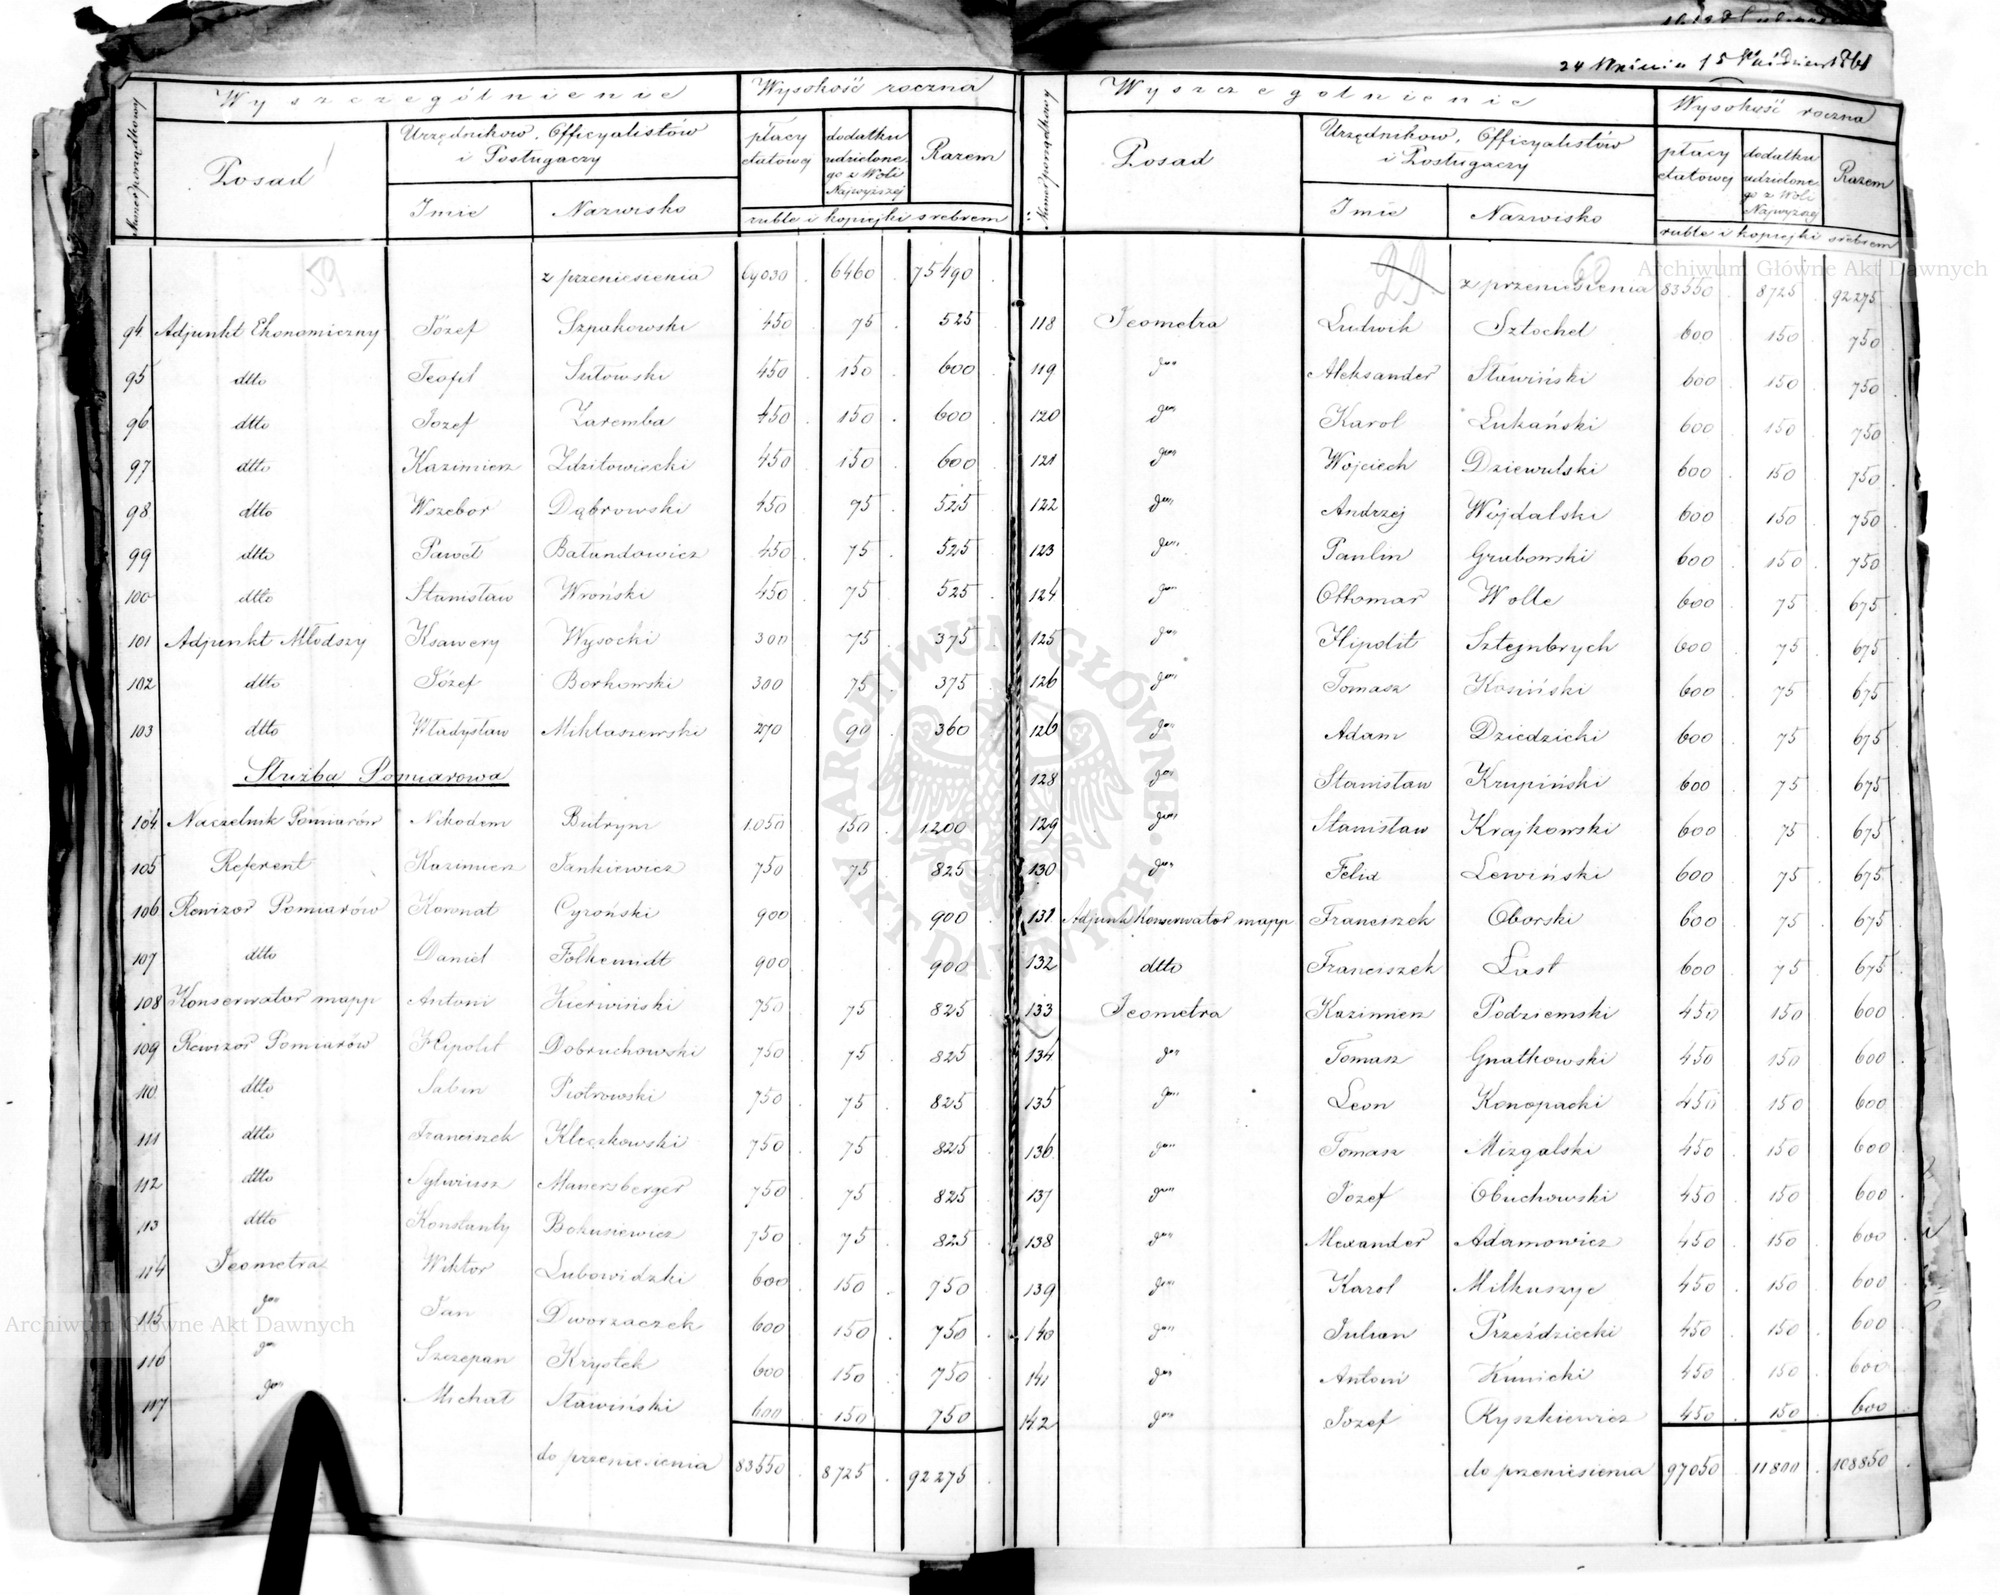 24 Września 1861
Numer porządkowy
Wyszczególnienie
Wysokość roczna
Posad
Urzędników, Officyalistów
i Posługaczy
płacy etatowej
dodatku udzielonego z Woli Najwyższej
Razem
Imie
Nazwisko
ruble i kopiejki srebrem
59
z przeniesienia 69030 . 6460 . 75490 .
94 Adjunkt Ekonomiczny Józef Szpakowski 450 . 75 . 525 .
95 dtto Teofil Sutowski 450 . 150 . 600 .
96 dtto Józef Zaremba 450 . 150 . 600 .
97 dtto Kazimierz Zdzitowiecki 450 . 150 . 600 .
98 dtto Wszebor Dąbrowski 450 . 75 . 525 .
99 dtto Paweł Bałandowicz 450 . 75 . 525 .
100 dtto Stanisław Wroński 450 . 75 . 525 .
101 Adjunkt Młodszy Ksawery Wysocki 300 . 75 . 375 .
102 dtto Józef Borkowski 300 . 75 . 375 .
103 dtto Władysław Mikłaszewski 270 . 90 . 360 .
Służba Pomiarowa
104 Naczelnik Pomiarów Nikodem Butrym 1.050 . 150 . 1.200 .
105 Referent Kazimierz Jankiewicz 750 . 75 . 825 .
106 Rewizor Pomiarów Kownat Cyroński 900 . 900 .
107 dtto Daniel Folkemdt 900 . 900 .
108 Konserwator mapp Antoni Kierwiński 750 . 75 . 825 .
109 Rewizor Pomiarów Hipolit Dobruchowski 750 . 75 . 825 .
110 dtto Sabin Piotrowski 750 . 75 . 825 .
111 dtto Franciszek Kleczkowski 750 . 75 . 825 .
112 dtto Sylwiusz Mauersberger 750 . 75 . 825 .
113 dtto Konstanty Bokusiewicz 750 . 75 . 825 .
114 Jeometra Wiktor Lubowidzki 600 . 150 . 750 .
115 Jan Dworzaczek 600 . 150 . 750 .
116 Szczepan Krystek 600 . 150 . 750 .
117 Michał Sławiński 600 . 150 . 750 .
do przeniesienia 83550 . 8725 . 92275 .
Numer porządkowy
Wyszczegolnienie
Wysokość roczna
Posad
Urzędnikow, Officyalistów
i Posługaczy
płacy etatowej
dodatku udzielonego z Woli Najwyższej
Razem
Imie
Nazwisko
ruble i kopiejki srebrem
29 60
z przeniesienia 83550 . 8725 . 92275 .
118 Jeometra Ludwik Sztochel 600 . 150 . 750 .
119 Aleksander Sławiński 600 . 150 . 750 .
120 Karol Łukański 600 . 150 . 750 .
121 Wojciech Dziewulski 600 . 150 . 750 .
122 Andrzej Wojdalski 600 . 150 . 750 .
123 Paulin Grabowski 600 . 150 . 750 .
124 Ottomar Wolle 600 . 75 . 675 .
125 Hipolit Sztejnbrych 600 . 75 . 675 .
126 Tomasz Kosiński 600 . 75 . 675 .
126 Adam Dziedzicki 600 . 75 . 675 .
128 Stanisław Krupiński 600 . 75 . 675 .
129 Stanisław Krajkowski 600 . 75 . 675 .
130 Felix Lewiński 600 . 75 . 675 .
131 Adjunk Konserwator mapp Franciszek Oborski 600 . 75 . 675 .
132 dtto Franciszek Last 600 . 75 . 675 .
133 Jeometra Kazimierz Podziemski 450 . 150 . 600 .
134 Tomasz Gnatkowski 450 . 150 . 600 .
135 Leon Konopacki 450 . 150 . 600 .
136 Tomasz Mizgalski 450 . 150 . 600 .
137 Józef Obuchowski 450 . 150 . 600 .
138 Alexander Adamowicz 450 . 150 . 600 .
139 Karol Milkuszyc 450 . 150 . 600 .
140 Julian Przeździecki 450 . 150 . 600 .
141 Antoni Kunicki 450 . 150 . 600 .
142 Józef Ryszkiewicz 450 . 150 . 600 .
do przeniesienia 97050 . 11800 . 108850 .
Archiwum Główne Akt Dawnych
Archiwum Główne Akt Dawnych
ARCHIWUM GŁÓWNE AKT DAWNYCH